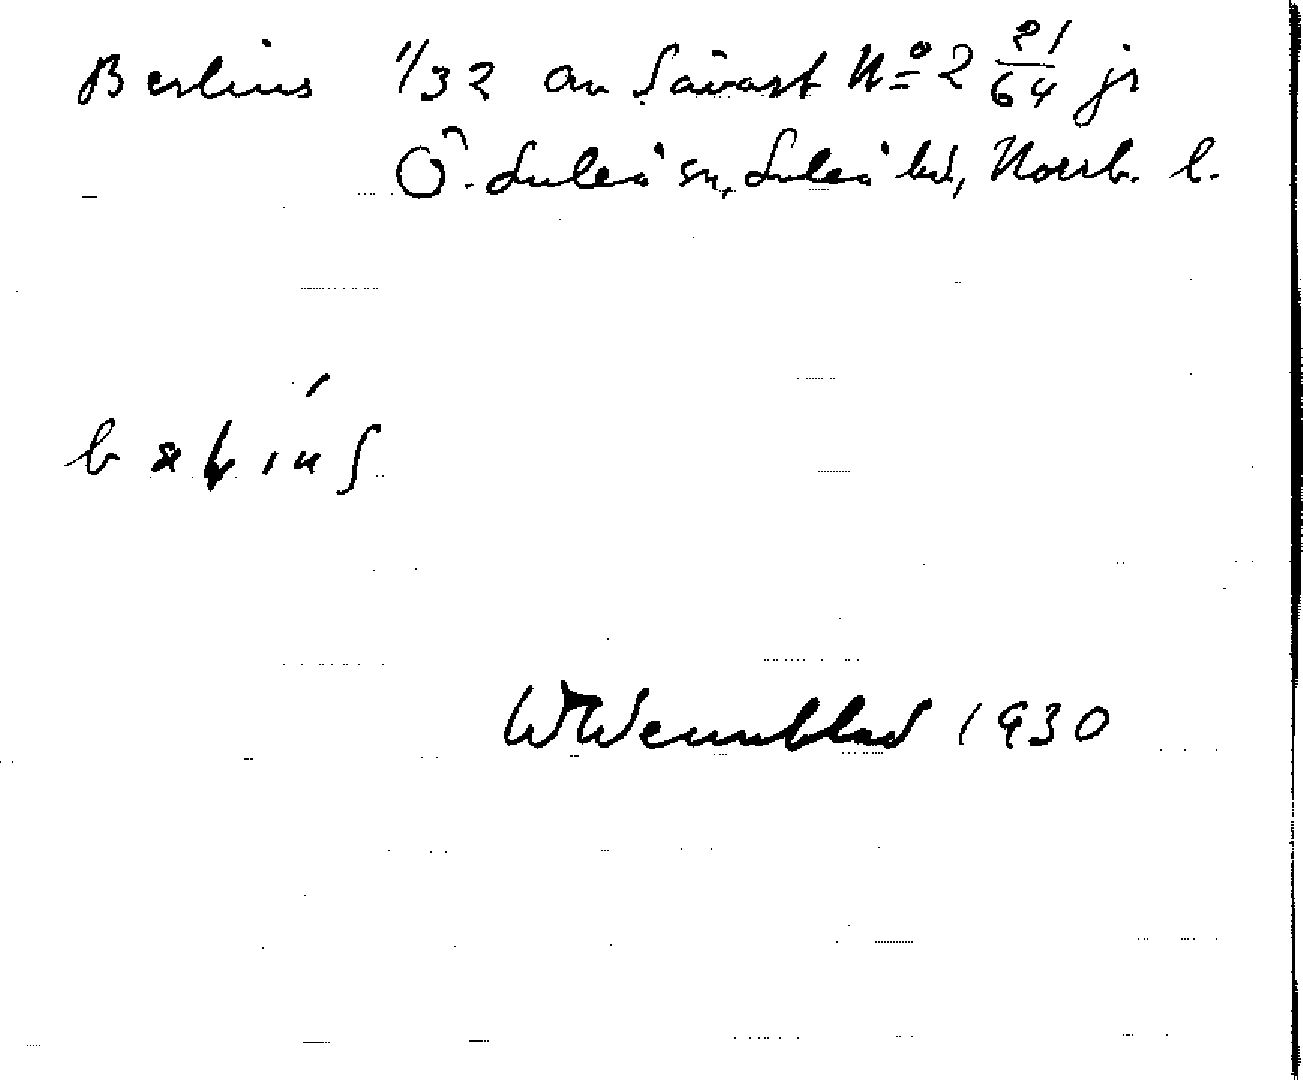 Berlins 1/32 av Sävast Nº 2 21/64 js
Ö. Luleå sn, Luleå hd, Norrb. l.
W Wennblad 1930